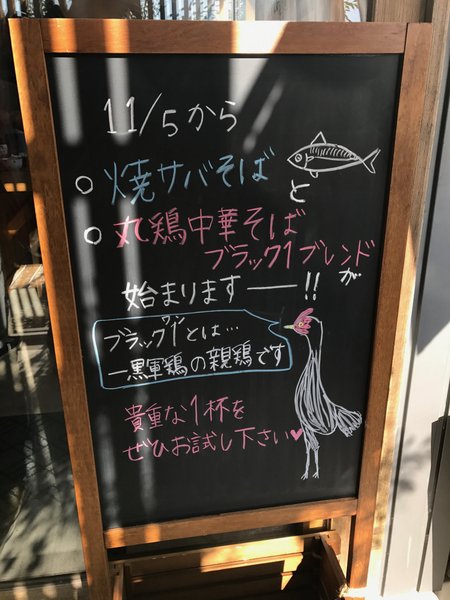 11/5から
○焼サバそば
と
○丸鶏中華そば
ブラック1ブレンド
が
始まります――!!
ブラック1とは…
ワン
一黒軍鶏の親鶏です
貴重な1杯を
ぜひお試し下さい♥